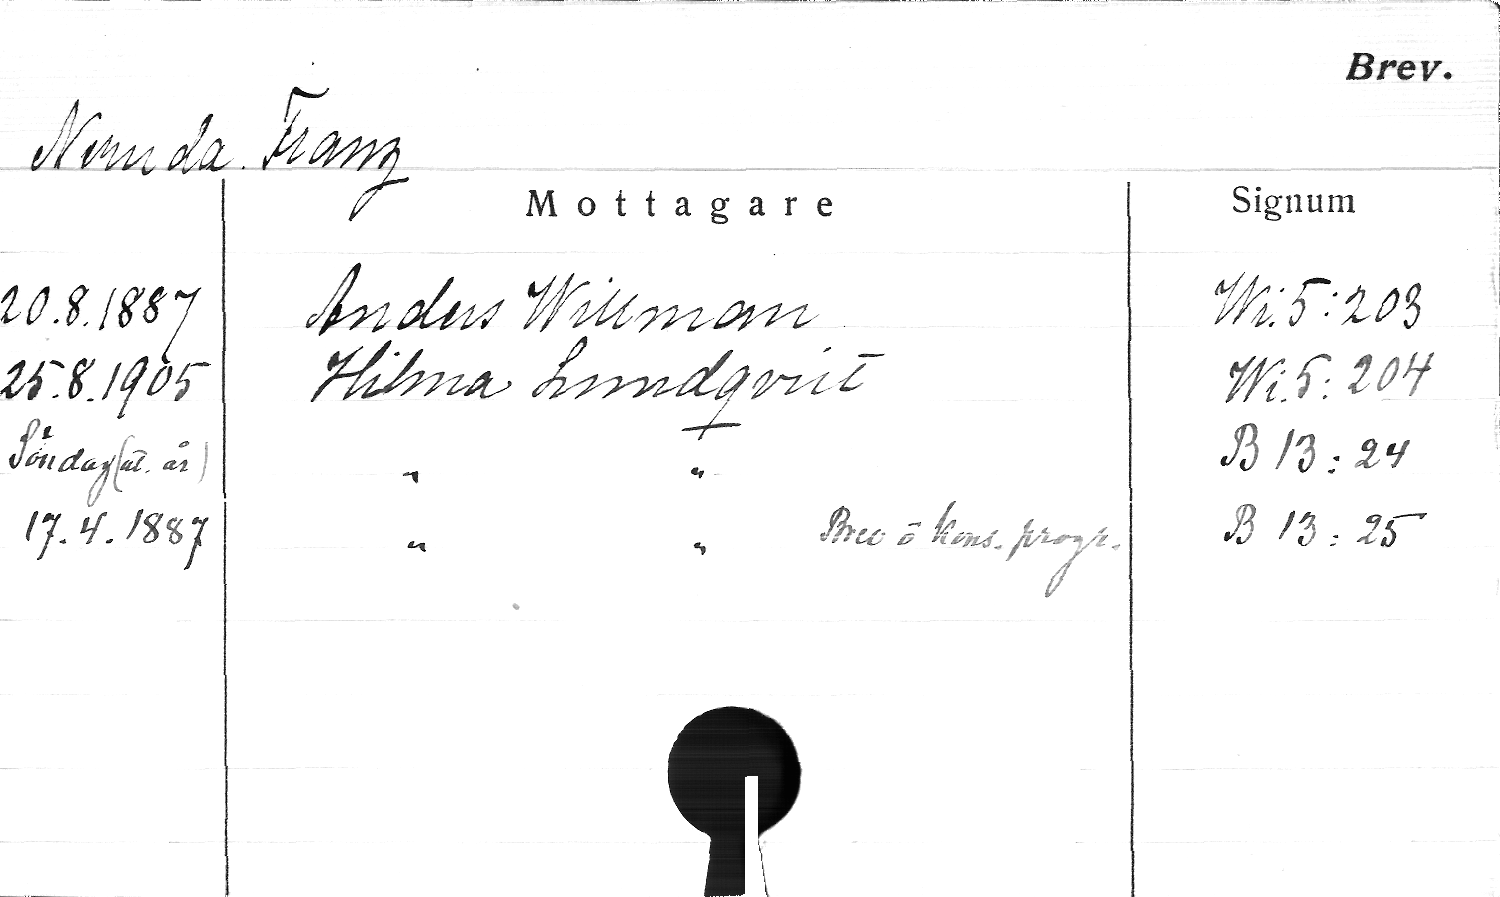 Brev.
Neruda. Franz
Mottagare Signum
20.8.1887 Anders Willman Wi.5:203
25.8.1905 Hilma Lundqvist Wi.5:204
Söndag (ut. år) " " B 13:24
17.4.1887 " " Brev o kons. progr. B 13:25